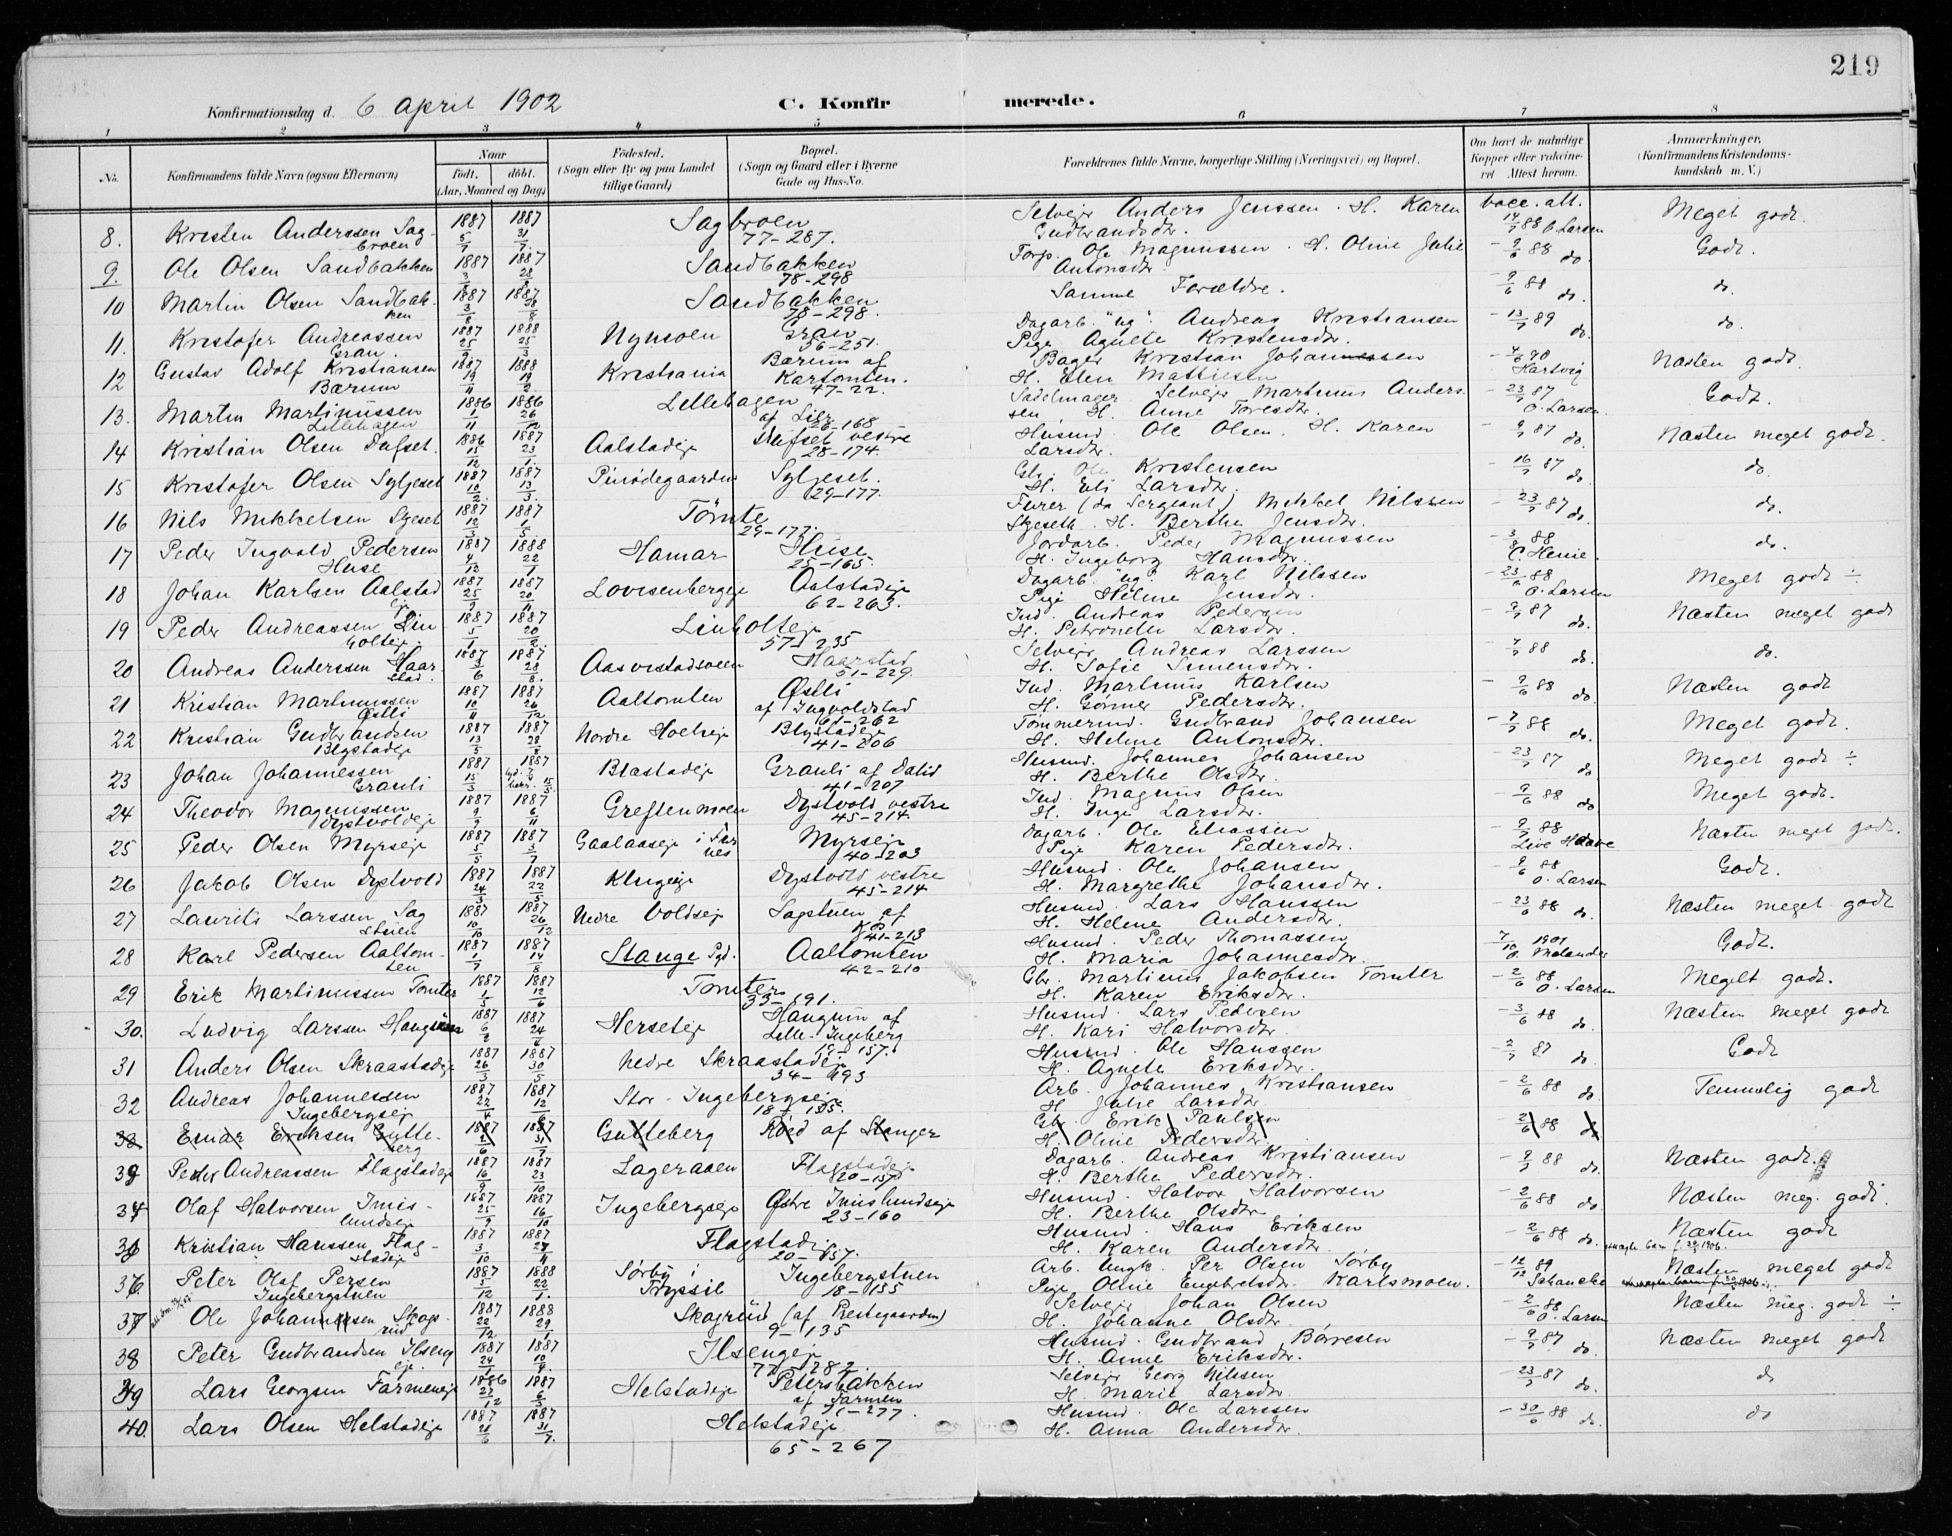 219
Konfirmationsdag d. 6 april 1902 C. Konfir merede.
1 2 3 4 5 6 7 8
No. Konfirmandens fulde Navn (ogsaa Efternavn) Naar født. døbt. (Aar, Maaned og Dag) Fødested. (Sogn eller By og paa Landet tillige Gaard) Bopæl. (Sogn og Gaard eller i Byerne Gade og Hus-No. Forældrenes fulde Navne, borgerlige Stilling (Næringsvei) og Bopæl. Om havt de naturlige Kopper eller vaccineret Attest herom. Anmærkninger. (Konfirmandens Kristendomskundskab m. V.)
8. Kristen Anderssen Sag- 1887 1887 Sagbroen Selvejer Anders Jenssen. H. Karen vacc. att. Meget godt.
broen 5/7 31/7 77-287. Gudbrandsdr. 14/9 88 O. Larsen
9. Ole Olsen Sandbakken 1887 1887 Sandbakken Forp. Ole Magnussen. H. Oline Julie - 9/6 88 do. Godt.
3/8 28/8 78-298 Antonsdr.
10 Martin Olsen Sandbak- 1887 1887 Sandbakken Samme Forældre. - 9/6 88 do. do.
ken 3/8 28/8 78-298.
11. Kristofer Andreassen 1887 1888 Nymoen Gran Dagarb. "ug". Andreas Kristiansen - 13/7 89 do. do.
Gran. 25/9 25/3 36-251. Pige Agnete Kristensdr.
12 Gustav Adolf Kristiansen 1887 1888 Kristiania Bærum af Bager Kristian Johannessen Hartvig Næsten godt.
Bærum 19/11 19/2 Kartomten. 47-22. H. Elen Mattiesen
13. Martin Martinussen 1886 1886 Lillehagen Sadelmager Selvejer Martinus Anders- - 23/7 87 O. Larsen. Godt.
Lillehagen 1/11 26/12 af Lier 28-168 sen H. Anne Toresdr.
14 Kristian Olsen Dufset. 1886 1887 Aalstadeje Dufset vestre Husmd. Ole Olsen. H. Karen - 9/7 87 do. Næsten meget godt.
15/12 23/1. 28-174. Larsdr.
15 Kristofer Olsen Syljeset 1887 1887 Pinødegaarden Syljeset. Gbr. Ole Kristensen - 16/7 87 do. do
10/2. 13/3. 29-177. H. Eli Larsdr.
16 Nils Mikkelsen Sljeset 1887 1887 Tømte Furer (da Sergeant) Mikkel Nilssen - 23/7 87 do. do.
12/3 1/5 29-177. H. Berthe Jensdr.
17 Peder Ingvald Pedersen 1887 1888 Hamar Huse Jordarb. Peder Magnussen - 3/8 88 C. Henie. do.
Huse 4/12 22/1 25-165. H. Ingeborg Hansdr.
18 Johan Karlsen Aalstad 1887 1887 Lovisenbergeje Aalstadeje Dagarb. "ug". Karl Nilssen - 23/6 88 O. Larsen Meget godt ÷
eje 25/9 20/11 62-263. Pige Helene Jensdr.
19 Peder Andreassen Lin- 1887 1887 Linholteje Ind. Andreas Pedersen - 9/7 87 do. Næsten meget godt
holteje 5/1 20/2. 57-235 H. Petronele Larsdr.
20 Andreas Anderssen Haar- 1887 1887 Aasvestadsveen Haarstad Selvejer Andreas Larssen - 7/7 88 do. do.
stad. 3/6 28/8. 51-229. H. Sofie Simensdr.
21 Kristian Martinussen 1887 1887 Aaltomten Østli Ind. Martinus Karlsen - 9/6 88 do. Næsten godt
Østli 10/11 26/12 af Ingvoldstad 61-262 H. Gunner Pedersdr.
22 Kristian Gudbrandsen 1887 1887 Nordre Hoelseje Blystadeje Tømmermd. Gudbrand Johansen - 7/7 88 do. Meget godt.
Blystadeje 13/5 28/8 41-206 H. Helene Antonsdr.
23 Johan Johannessen 1887 1887 Blæstadeje Grauli af Dalid Husmd. Johannes Johansen - 23/7 87 do Meget godt ÷
Grauli 15/3 41-207 H. Berthe Olsdr.
24 Theodor Magnussen 1887 1887 Greftenmoen Dystvold vestre Ind. Magnus Olsen - 9/6 88 do Meget godt.
Dystvoldeje 9/9 6/11 45-214. H. Inge Larsdr.
25 Peder Olsen Myrseje 1887 1887 Gaalaaseje i Fur- Myrseje Dagarb. Ole Eliassen - 9/7 88 Næsten meget godt.
5/5 3/7 nes 40-203 Pige Karen Pedersdr.
26 Jakob Olsen Dystvold 1887 1887 Klugeeje Dystvold vestre Husmd. Ole Johansen - 9/6 88 O. Larsen Godt.
24/3 22/5 45-214 H. Margrethe Johansdr.
27 Laurits Larssen Sag 1887 1887 Nedre Voldseje Sagstuen af Husmd. Lars Hanssen - 23/6 88 do. Næsten meget godt
stuen 10/10 26/12 41-213 H. Helene Andersdr.
28 Karl Pedersen Aaltom- 1887 1887 Stange Pgd. Aaltomten Husmd. Peder Thomassen 7/10 1901 O. Melander Godt.
ten 1/7 14/8 42-210 H. Maria Johannesdr.
29 Erik Martinussen Tomter 1887 1887 Tomter Gbr. Martinus Jakobsen Tomter - 2/6 88 O. Larsen Meget godt.
1/5 12/6 33-191. H. Karen Eriksdr.
30. Ludvig Larssen Haugum 1887 1887 Herseteje Haugum af Husmd. Lars Pedersen - 3/6 88 do. Næsten meget godt
6/2 24/4 Lille-Ingeberg 19-157. H. Kari Halvorsdr.
31 Anders Olsen Skraastadeje 1887 1887 Nedre Skraastadeje Husmd. Ole Hanssen - 2/7 87 do. Godt
26/3 30/5 34-193 H. Agnete Eriksdr.
32 Andreas Johannessen 1887 1887 Stor-Ingebergseje Arb. Johannes Kristiansen - 2/6 88 do. Temmelig godt
Ingebergseje 22/4 12/6 18-155. H. Julie Larsdr.
33 Einar Eriksen Gutte- 1887 1887 Gutteberg Røed af Stanger Gbr. Erik Paulsen - 2/6 88 do
berg 2/6 31/7 H. Oline Pedersdr.
33 Peder Andreassen Flagstadeje 1887 1887 Lageraaen Flagstadeje Dagarb. Andreas Kristiansen - 9/7 88 do. Næsten godt.
16/9 23/10 20-157 H. Berthe Pedersdr.
34 Olaf Halvorsen Imis- 1887 1887 Ingebergseje Østre Imislundseje Husmd. Halvor Halvorsen - 2/6 88 do Næsten meg. godt.
lundseje 25/9 16/10 23-160 H. Berthe Olsdr.
35 Kristian Hanssen Flag- 1887 1887 Flagstadeje Husmd. Hans Eriksen - 2/6 88 do. Næsten godt
stadeje 3/10 27/11 20-157. H. Karen Andersdr.
36 Peter Olaf Persen 1887 1888 Sørby i Ingebergstuen Arb. Ungk. Per Olsen Sørby - 12/12 89 Næsten meget godt
Ingebergstuen 5/12 22/1. Tryssil 18-155 Pige Oline Engebretsdr. Karlsmoen.
37 Ole Johannessen Skogs- 1887 1888 Skogrud (af Prestegaarden) Selvejer Johan Olsen - 2/6 88 O. Larsen Næsten meg. godt ÷
rud 22/12 29/1 9-135 H. Johanne Olsdr.
38 Peter Gudbrandsen Ilseng 1887 1887 Ilsengeje Husmd. Gudbrand Børresen - 9/7 87 do. Næsten meget godt
eje. 24/1 10/4. 77-282. H. Anne Eriksdr.
39 Lars Georgsen Farmeneje 1886 1887 Helstadeje Petersbakken Selvejer Georg Nilssen - 23/7 87 do. do
27/12 6/3 af Farmen 71-277. H. Marie Larsdr.
40. Lars Olsen Helstadeje 1887 1887 Helstadeje Husmd. Ole Larssen - 30/6 88 do. do
20/6 31/7. 65-267 H. Anna Andersdr.